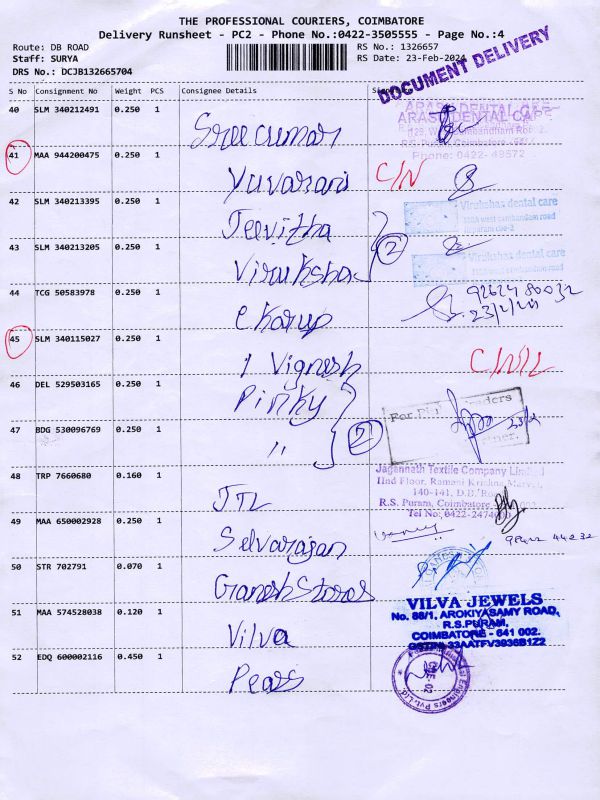 THE PROFESSIONAL COURIERS, COIMBATORE
Delivery Runsheet - PC2 - Phone No.:0422-3505555 - Page No.:4
Route: DB ROAD
Staff: SURYA
DRS No.: DCJB132665704
RS No.: 1326657
RS Date: 23-Feb-2024
DOCUMENT DELIVERY
S No Consignment No Weight PCS Consignee Details
40 SLM 340212491 0.250 1 Sree cumar
ARASU DENTAL CARE
R.S. Puram, Coimbatore
Phone: 0422-
41 MAA 944200475 0.250 1 Yuvarani C/N
42 SLM 340213395 0.250 1 Jeevitha
Virukshaa dental care
43 SLM 340213205 0.250 1 Viruksha 2
Virukshaa dental care
44 TCG 50583978 0.250 1 e Karup
92624 80032
23/2/24
45 SLM 340115027 0.250 1 1 Vignesh
46 DEL 529503165 0.250 1 Pinky
For
47 BDG 530096769 0.250 1 " 2
48 TRP 7660680 0.160 1 JTL
Jagannath Textile Company Limited
IInd Floor, Ramani Krishna
140-141, D.B. Road
R.S. Puram, Coimbatore
Tel No: 0422-
49 MAA 650002928 0.250 1 Selvarajan
50 STR 702791 0.070 1 Ganesh Stores
51 MAA 574528038 0.120 1 Vilva
VILVA JEWELS
No. 88/1, AROKIYASAMY ROAD,
R.S.PURAM,
COIMBATORE - 641 002.
33AATFV3936B1Z2
52 EDQ 600002116 0.450 1 Pears
Engineers Pvt. Ltd.